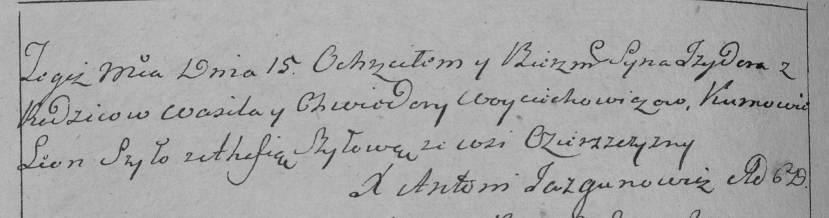 Tegoż Mca Dnia 15. Ochrzciłem y Bierzm Syna Izydora z
Rodzicow Wasila y Chwiedory Woyciechowiczow, Kumowie
Leon Szyło z Szyłową ze wsi
X Antoni Jazgunowicz